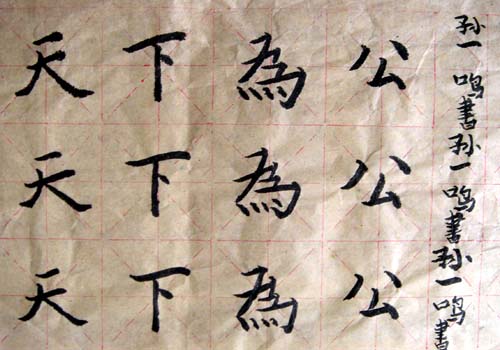 天下為公
天下為公
天下為公
孙一鸣書孙一鸣書孙一鸣書